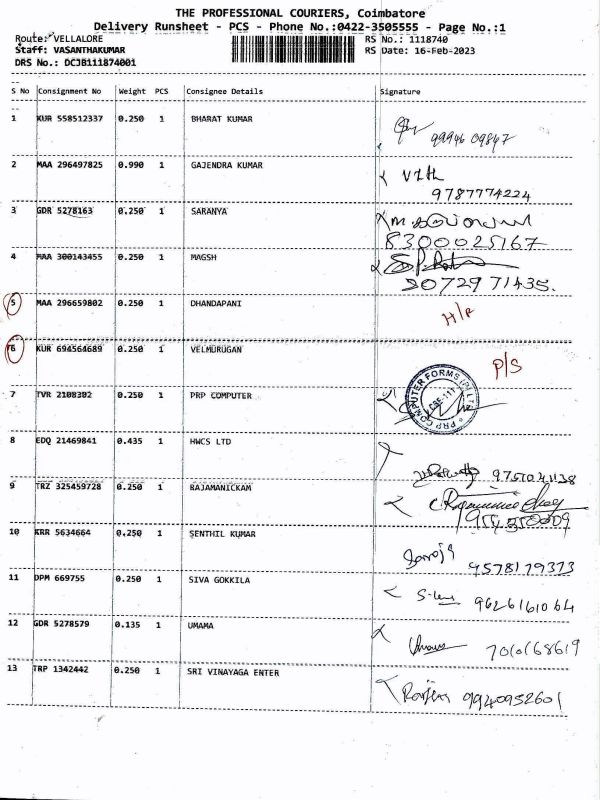 THE PROFESSIONAL COURIERS, Coimbatore
Delivery Runsheet - PCS - Phone No.:0422-3505555 - Page No.:1
Route: VELLALORE RS No.: 1118740
Staff: VASANTHAKUMAR RS Date: 16-Feb-2023
DRS No.: DCJB111874001
S No Consignment No Weight PCS Consignee Details Signature
1 KUR 558512337 0.250 1 BHARAT KUMAR
99946 09847
2 MAA 296497825 0.990 1 GAJENDRA KUMAR
9787774224
3 GDR 5278163 0.250 1 SARANYA
8300025167
4 MAA 300143455 0.250 1 MAGSH
9072971435.
5 MAA 296659802 0.250 1 DHANDAPANI
6 KUR 694564689 0.250 1 VELMURUGAN
P/S
7 TVR 2108302 0.250 1 PRP COMPUTER
PRP COMPUTER FORMS (P) LTD
8 EDQ 21469841 0.435 1 HWCS LTD
9751041138
9 TRZ 325459728 0.250 1 RAJAMANICKAM
10 KRR 5634664 0.250 1 SENTHIL KUMAR
Saroja 9578179373
11 DPM 669755 0.250 1 SIVA GOKKILA
9626161064
12 GDR 5278579 0.135 1 UMAMA
7010168619
13 TRP 1342442 0.250 1 SRI VINAYAGA ENTER
9940952601